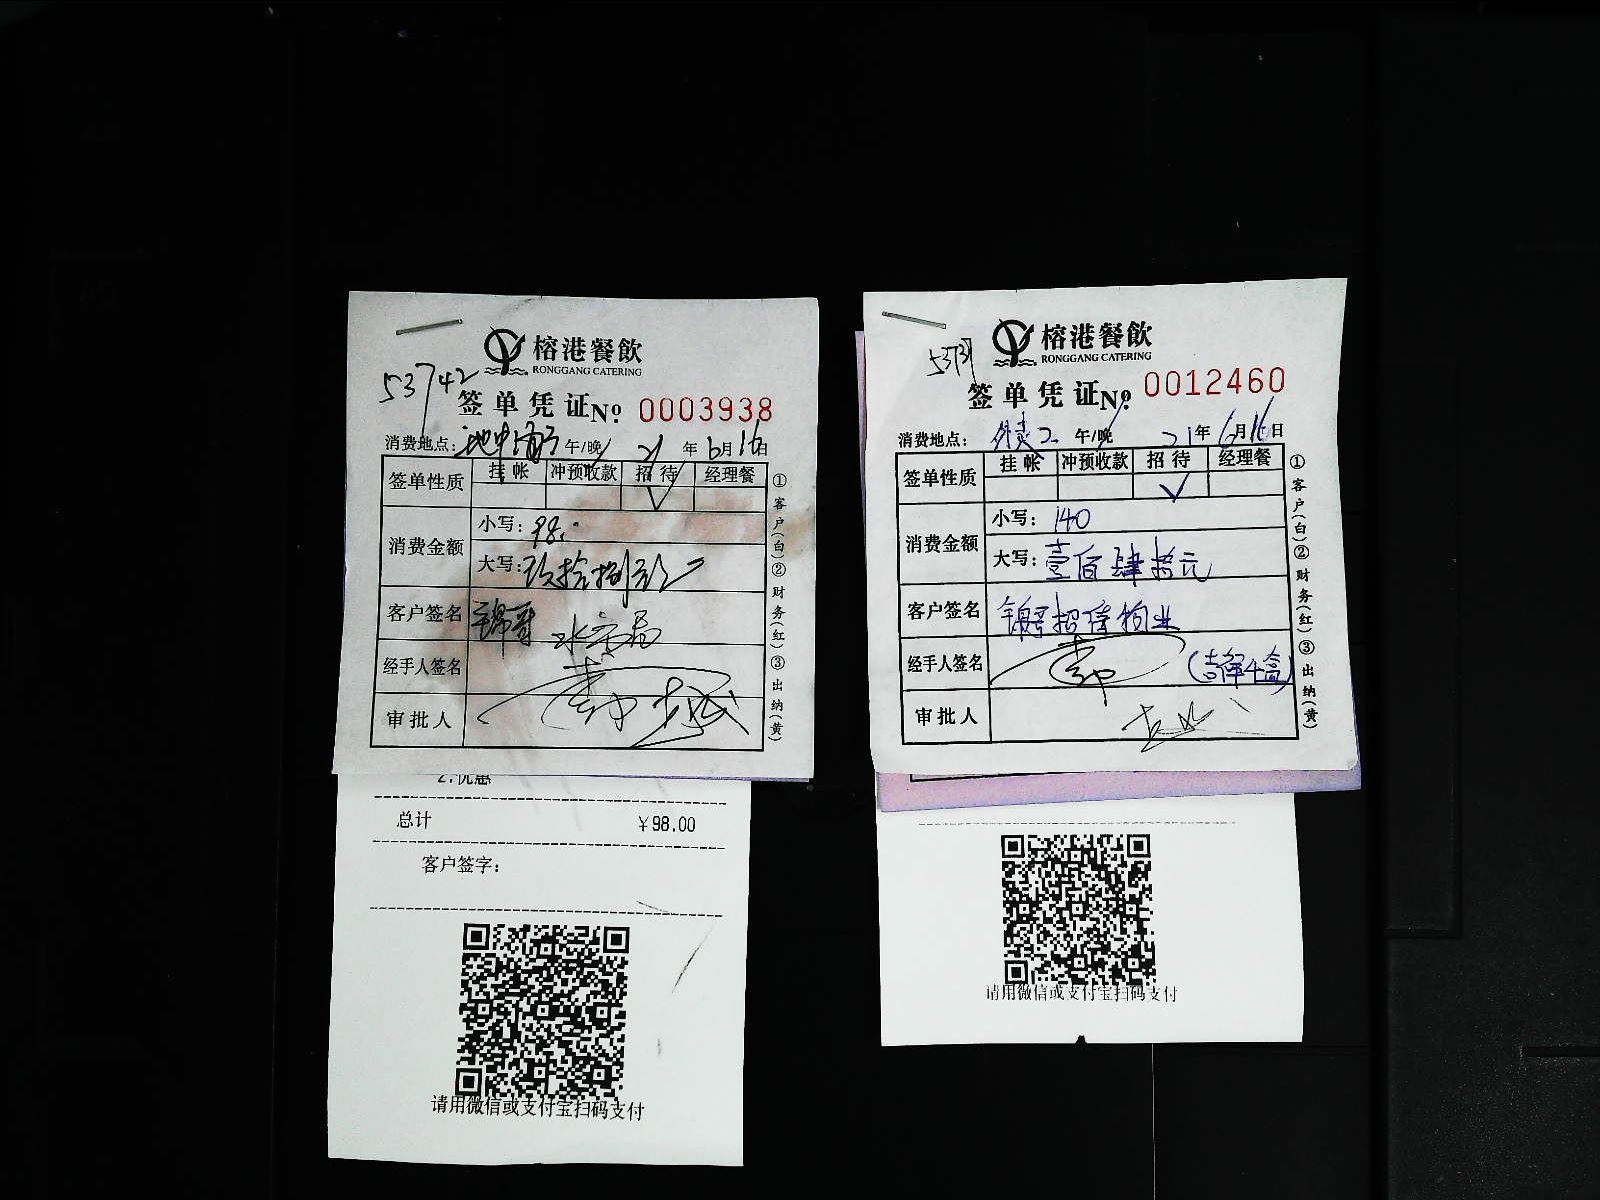 榕港餐飲
RONGGANG CATERING
53742
签单凭证 No. 0003938
消费地点: 地中海 午/晚 21年6月16日
签单性质 挂帐 冲预收款 招待 经理餐
✓
消费金额 小写: 98.
大写: 玖拾捌元
客户签名 锦哥
经手人签名
审批人
①客户(白)②财务(红)③出纳(黄)
2.优惠
总计 ¥98.00
客户签字:
请用微信或支付宝扫码支付
榕港餐飲
RONGGANG CATERING
签单凭证 No. 0012460
消费地点: 外卖2 午/晚 21年6月16日
签单性质 挂帐 冲预收款 招待 经理餐
✓
消费金额 小写: 140
大写: 壹佰肆拾元
客户签名 锦哥招待物业
经手人签名
审批人
①客户(白)②财务(红)③出纳(黄)
请用微信或支付宝扫码支付